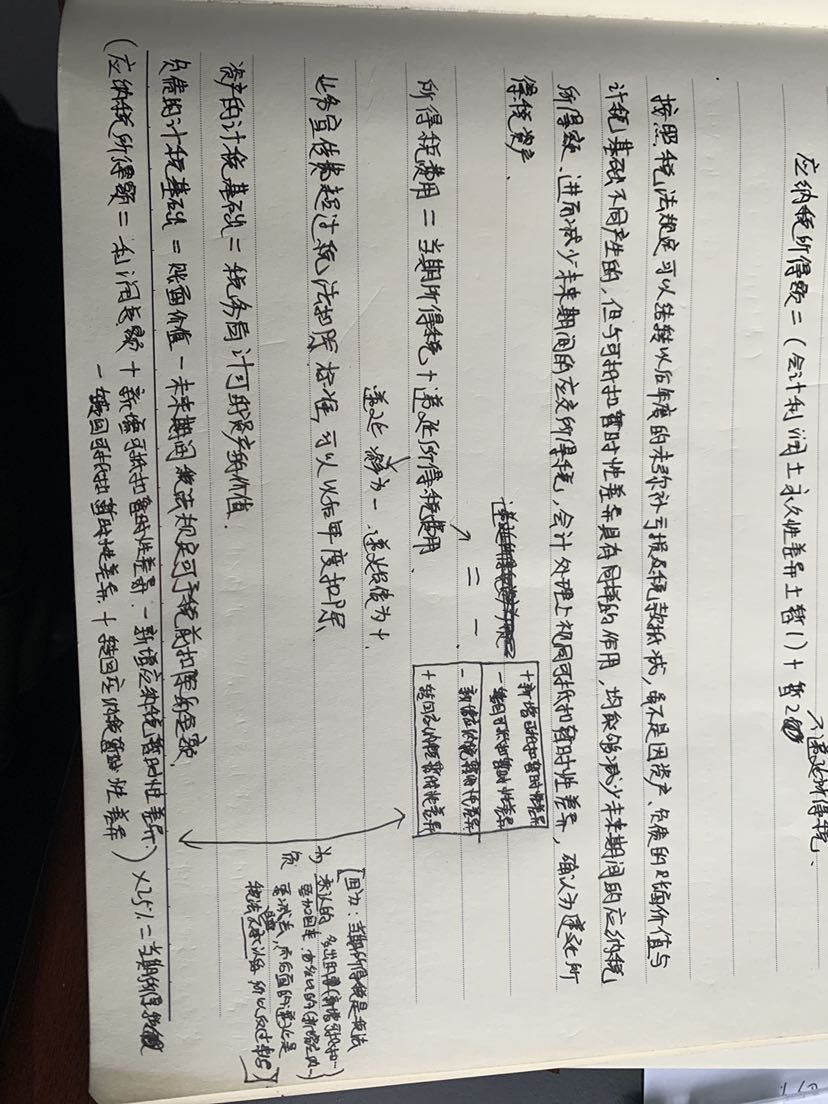 应纳税所得额=(会计利润±永久性差异±暂1)+暂2
不递延所得税、
按照税法规定可以结转以后年度的未弥补亏损及税款抵减,虽不是因资产、负债的账面价值与
计税基础不同产生的,但与可抵扣暂时性差异具有同样的作用,均能够减少未来期间的应纳税
所得额、进而减少未来期间的应交所得税,会计处理上视同可抵扣暂时性差异,确认为递延所
得税资产.
= -
+新增可抵扣暂时性差异
-转回可抵扣暂时性差异
-新增应纳税暂时性差异
+转回应纳税暂时性差异
所得税费用=当期所得税+递延所得税费用.
递延 为-.递延负债为+.
业务宣传费超过税法扣除标准,可以以后年度扣除
资产的计税基础=税务局计可的资产的价值.
负债的计税基础=账面价值-未来期间税法规定可予税前扣除的金额
(应纳税所得额=利润总额+新增可抵扣暂时性差异-新增应纳税暂时性差异.
-转回可抵扣暂时性差异.+转回应纳税暂时性差异)×25%=当期所得税
[因为:当期所得税是税法
承认的
要加回去
要减去,而后面的递延是
税法不承认的,所以反过来